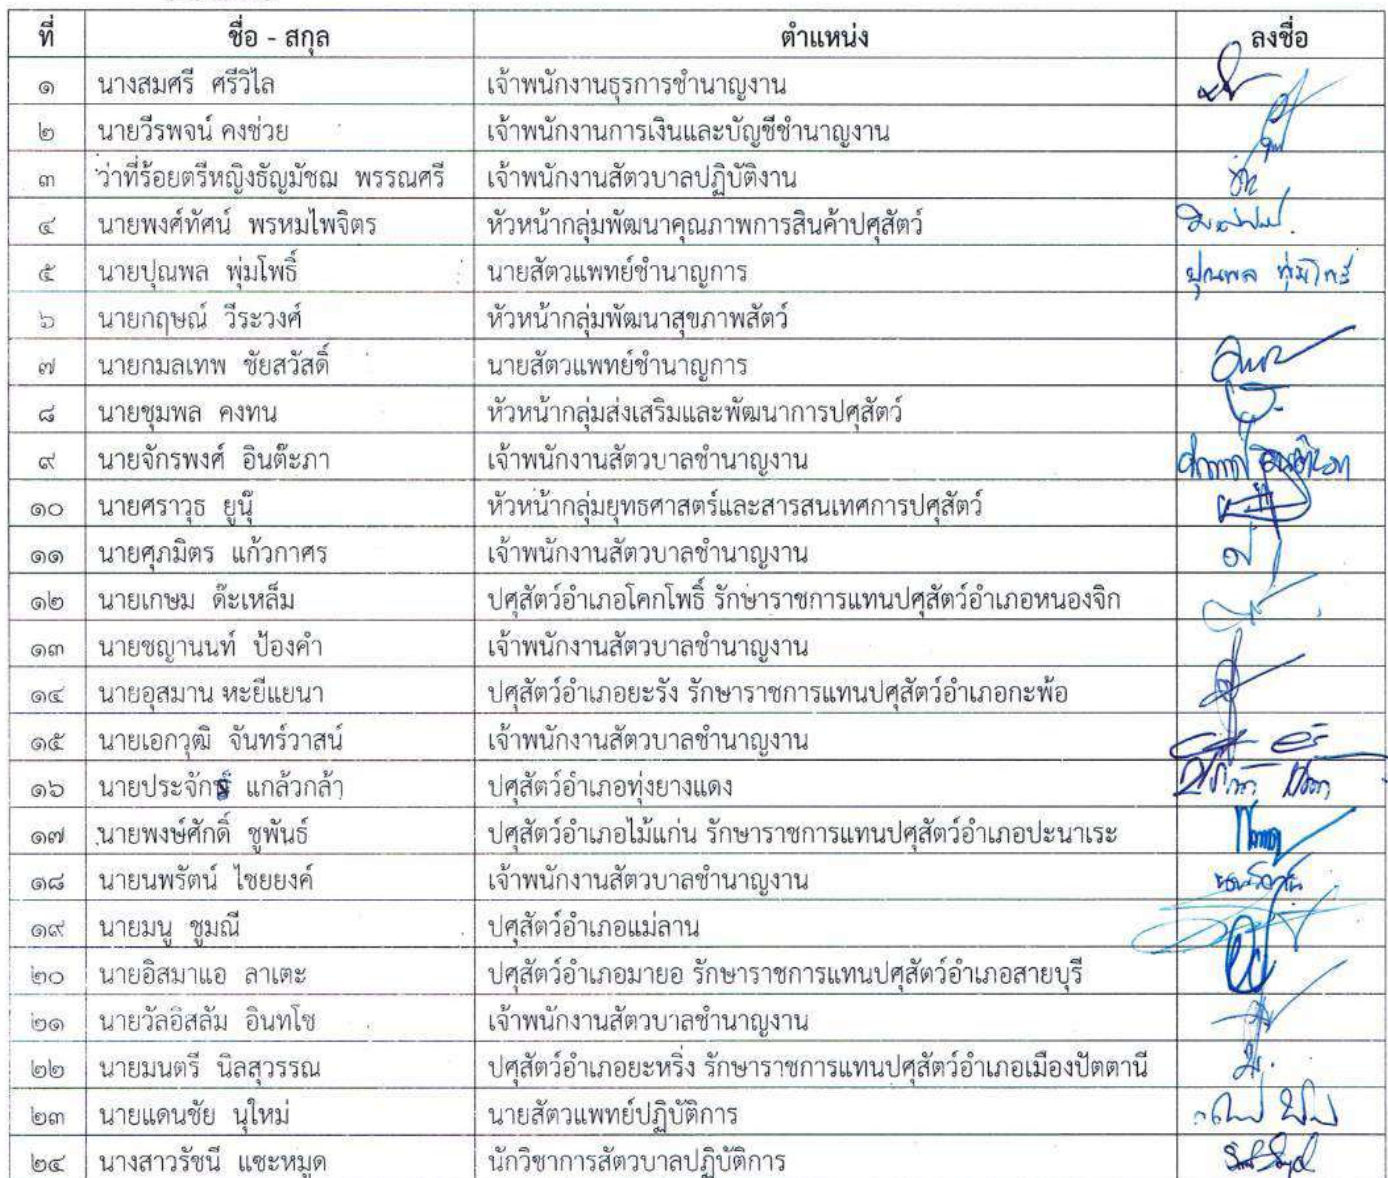 ที่ ชื่อ - สกุล ตำแหน่ง ลงชื่อ
๑ นางสมศรี ศรีวิไล เจ้าพนักงานธุรการชำนาญงาน
๒ นายวีรพจน์ คงช่วย เจ้าพนักงานการเงินและบัญชีชำนาญงาน
๓ ว่าที่ร้อยตรีหญิงธัญมัชฌ พรรณศรี เจ้าพนักงานสัตวบาลปฏิบัติงาน
๔ นายพงศ์ทัศน์ พรหมไพจิตร หัวหน้ากลุ่มพัฒนาคุณภาพการสินค้าปศุสัตว์
๕ นายปุณพล พุ่มโพธิ์ นายสัตวแพทย์ชำนาญการ ปุณพล พุ่มโพธิ์
๖ นายกฤษณ์ วีระวงศ์ หัวหน้ากลุ่มพัฒนาสุขภาพสัตว์
๗ นายกมลเทพ ชัยสวัสดิ์ นายสัตวแพทย์ชำนาญการ
๘ นายชุมพล คงทน หัวหน้ากลุ่มส่งเสริมและพัฒนาการปศุสัตว์
๙ นายจักรพงศ์ อินต๊ะภา เจ้าพนักงานสัตวบาลชำนาญงาน
๑๐ นายศราวุธ ยูนุ๊ หัวหน้ากลุ่มยุทธศาสตร์และสารสนเทศการปศุสัตว์
๑๑ นายศุภมิตร แก้วกาศร เจ้าพนักงานสัตวบาลชำนาญงาน
๑๒ นายเกษม ต๊ะเหล็ม ปศุสัตว์อำเภอโคกโพธิ์ รักษาราชการแทนปศุสัตว์อำเภอหนองจิก
๑๓ นายชญานนท์ ป้องคำ เจ้าพนักงานสัตวบาลชำนาญงาน
๑๔ นายอุสมาน หะยีแยนา ปศุสัตว์อำเภอยะรัง รักษาราชการแทนปศุสัตว์อำเภอกะพ้อ
๑๕ นายเอกวุฒิ จันทร์วาสน์ เจ้าพนักงานสัตวบาลชำนาญงาน
๑๖ แกล้วกล้า ปศุสัตว์อำเภอทุ่งยางแดง
๑๗ นายพงษ์ศักดิ์ ชูพันธ์ ปศุสัตว์อำเภอไม้แก่น รักษาราชการแทนปศุสัตว์อำเภอปะนาเระ
๑๘ นายนพรัตน์ ไชยยงค์ เจ้าพนักงานสัตวบาลชำนาญงาน
๑๙ นายมนู ชูมณี ปศุสัตว์อำเภอแม่ลาน
๒๐ นายอิสมาแอ ลาเตะ ปศุสัตว์อำเภอมายอ รักษาราชการแทนปศุสัตว์อำเภอสายบุรี
๒๑ นายวัลอิสลัม อินทโช เจ้าพนักงานสัตวบาลชำนาญงาน
๒๒ นายมนตรี นิลสุวรรณ ปศุสัตว์อำเภอยะหริ่ง รักษาราชการแทนปศุสัตว์อำเภอเมืองปัตตานี
๒๓ นายแดนชัย นุใหม่ นายสัตวแพทย์ปฏิบัติการ
๒๔ นางสาวรัชนี แซะหมูด นักวิชาการสัตวบาลปฏิบัติการ